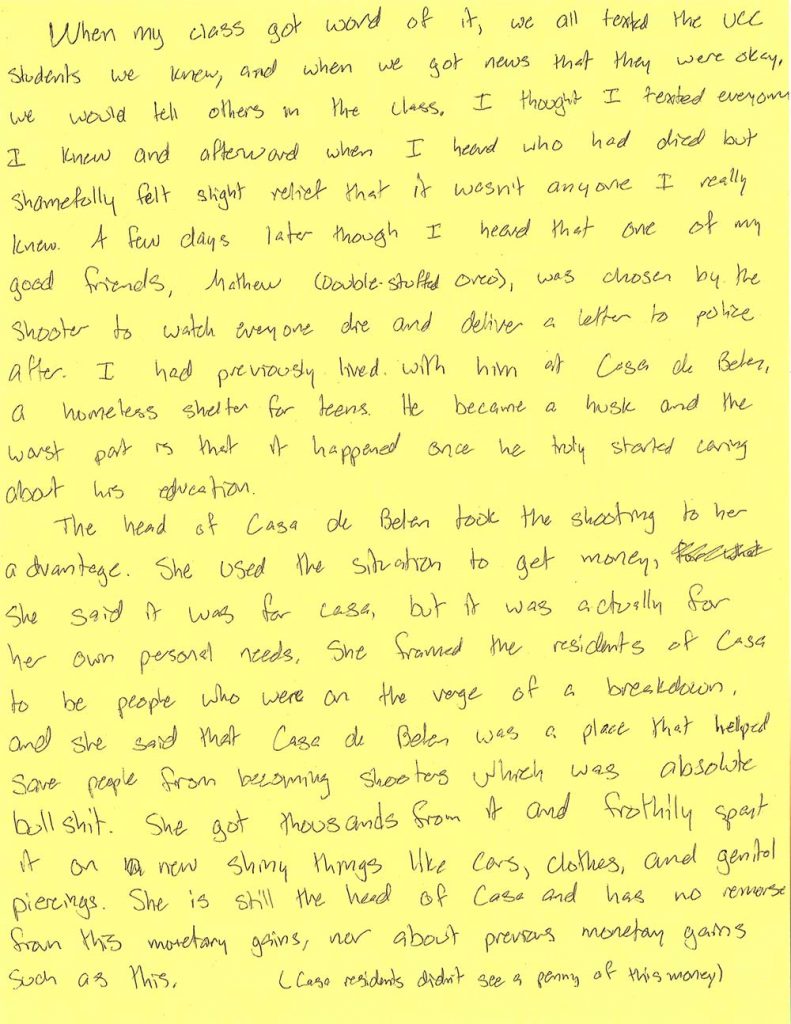 When my class got word of it, we all texted the UCC
students we knew, and when we got news that they were okay,
we would tell others in the class. I thought I texted everyone
I knew and afterward when I heard who had died but
shamefully felt slight relief that it wasn't anyone I really
knew. A few days later though I heard that one of my
good friends, Mathew (Double-stuffed Oreo), was chosen by the
shooter to watch everyone die and deliver a letter to police
after. I had previously lived with him at Casa de Belen,
a homeless shelter for teens. He became a husk and the
worst part is that it happened once he truly started caring
about his education.
The head of Casa de Belen took the shooting to her
advantage. She used the situation to get money,
she said it was for casa, but it was actually for
her own personal needs. She framed the residents of Casa
to be people who were on the verge of a breakdown,
and she said that Casa de Belen was a place that helped
save people from becoming shooters which was absolute
bullshit. She got thousands from it and frothily spent
it on new shiny things like cars, clothes, and genital
piercings. She is still the head of Casa and has no remorse
from this monetary gains, nor about previous monetary gains
such as this. (Casa residents didn't see a penny of this money)